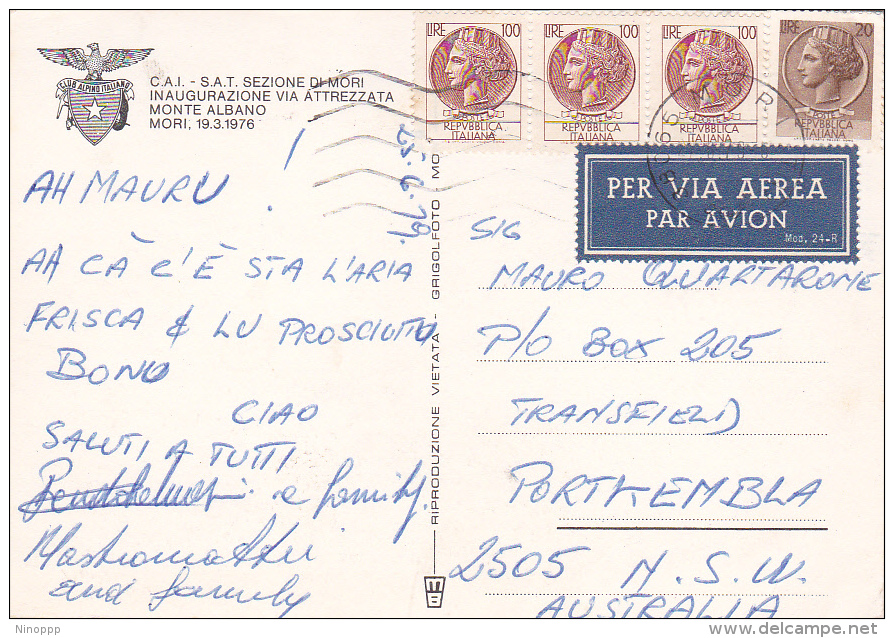 CLUB ALPINO ITALIANO
C.A.I. - S.A.T. SEZIONE DI MORI
INAUGURAZIONE VIA ATTREZZATA
MONTE ALBANO
MORI, 19.3.1976
25.2.79.
AH MAURU !
AH CÀ C'È STA L'ARIA
FRISCA & LU PROSCIUTTU
BONU
CIAO
SALUTI A TUTTI
e family.
Mastromattei
and family
RIPRODUZIONE VIETATA - GRIGOLFOTO - MO
LIRE 100
POSTE
REPVBBLICA
ITALIANA
LIRE 100
POSTE
REPVBBLICA
ITALIANA
LIRE 100
POSTE
REPVBBLICA
ITALIANA
LIRE 20
POSTE
REPVBBLICA
ITALIANA
PER VIA AEREA
PAR AVION
Mod. 24-R
SIG
MAURO QUARTAROME
P/O BOX 205
TRANSFIELD
PORTKEMBLA
2505 N.S.W.
AUSTRALIA
Ninoppp
delcampe.net